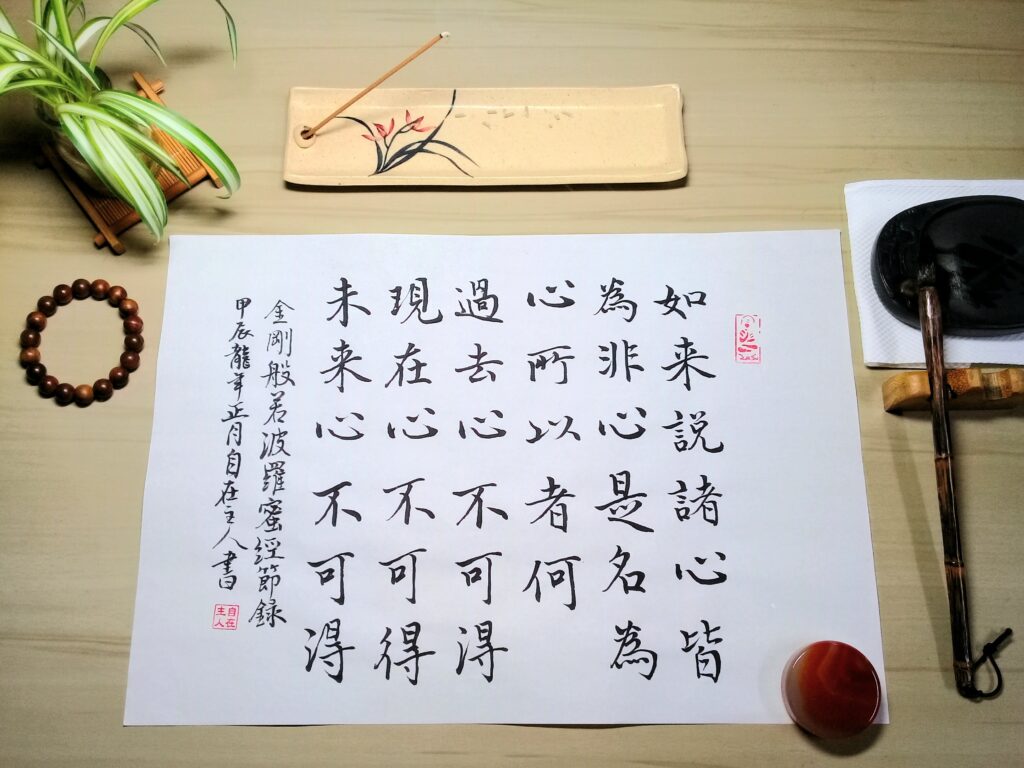 如来説諸心皆
為非心是名為
心所以者何
過去心不可得
現在心不可得
未来心不可得
金剛般若波羅蜜經節録
甲辰龍年正月自在主人書
自在主人